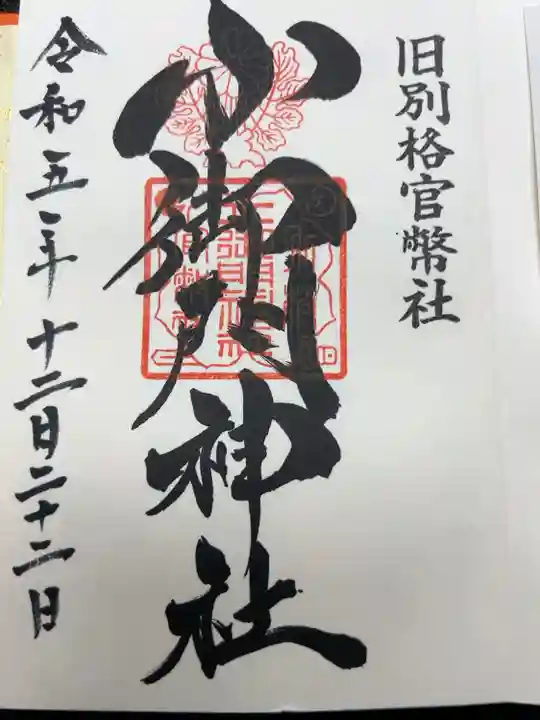 旧別格官幣社
小御門神社
令和五年十二月二十二日